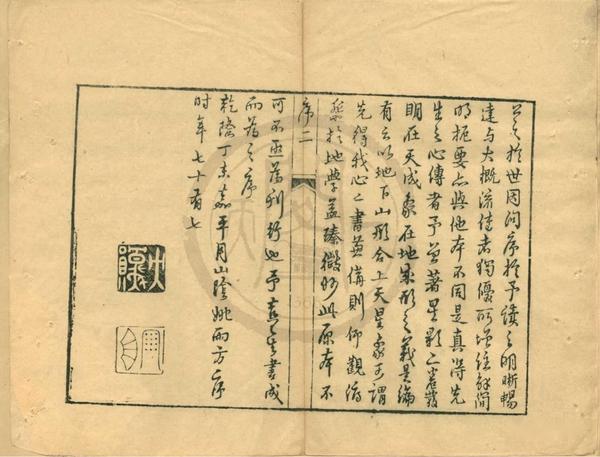 公之於世因问序於予读之明晰暢
達与大概流传者獨優所增註解簡
明扼要与他本不同是真得先
生之心傳者予曾著星影之書發
明在天成象在地成形之義是编
有云以地下山形合上天星象可謂
先得我心之書兼備則仰觀俯
察於地学益臻微妙此原本不
序二
可不亟為刊行也予喜其書成
而為之序
乾隆丁亥嘉平月山陰姚雨方序
时年七十有七